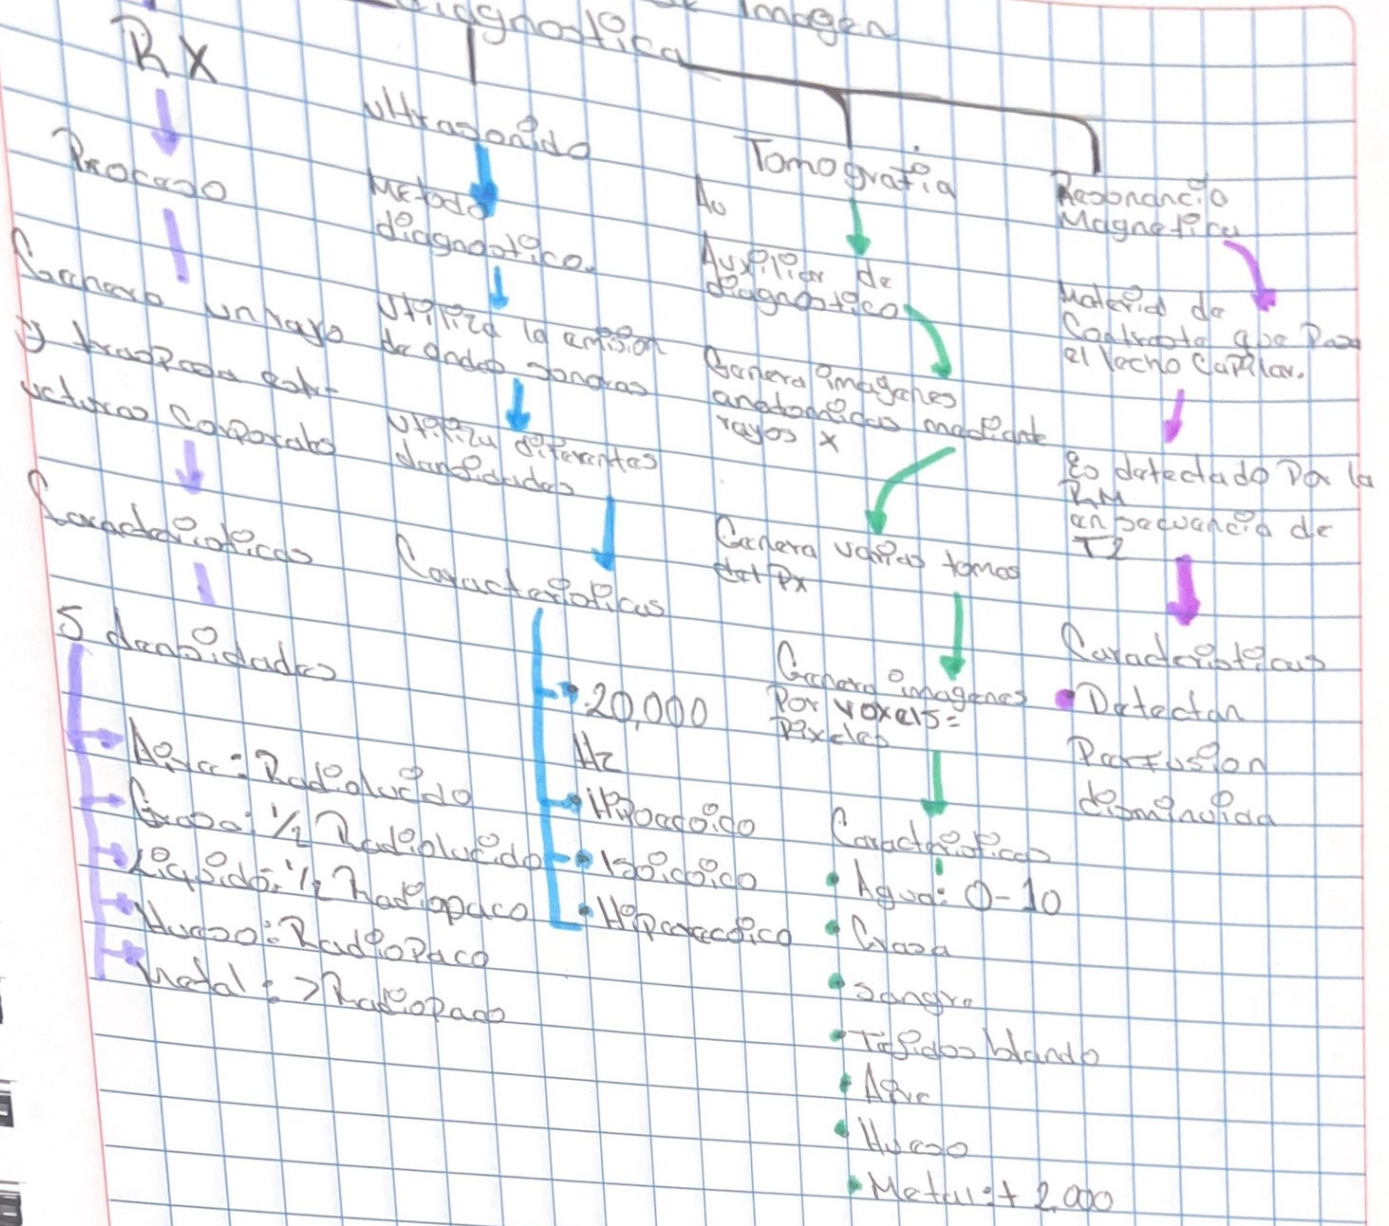 Diagnostica de Imagen
RX
Proceso
Genera un rayo
y traspasa estr-
ucturas corporales
Características
5 densidades
Aire: Radiolucido
Grasa: 1/2 Radiolucido
Liquido: 1/2 radiopaco
Hueso: Radiopaco
Metal: > Radiopaco
Ultrasonido
Metodo
diagnostico.
Utiliza la emision
de ondas sonoras
Utiliza diferentes
densidades
Características
20,000
Hz
Hipoecoico
Isoicoico
Hiperecoico
Tomografia
Au
Auxiliar de
diagnostico
Genera imagenes
anatomicas mediante
rayos x
Genera varias tomas
del Px
Genera imagenes
Por voxels =
Pixeles
Características
Agua: 0-10
Grasa
Sangre
Tejidos blando
Aire
Hueso
Metal: + 2,000
Resonancia
Magnetica
Material de
Contraste que Pasa
el lecho Capilar.
Es detectado Por la
RM
en secuencia de
T2
Características
Detectan
Perfusion
disminuida